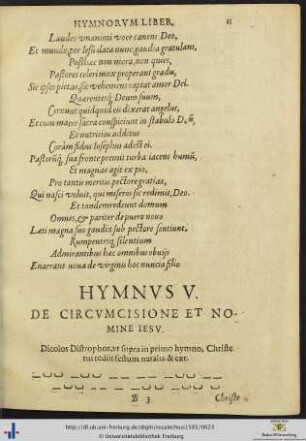 HYMNORVM LIBER.
Laudes vnanimi voce canent Deo,
Et mundo per Iesu data nunc gaudia gratulans,
Posthac non mora, non quies,
Pastores celeri mox properant gradu,
Sic ipse pietas, sic vehemens raptat amor Dei.
Quærentesq́; Deum suum,
Cernunt quidquid eis dixerat angelus,
Et cum matre sacra conspiciunt in stabulo Dũ,
Et nutritius additus
Coràm fidus Iosephus adest ei.
Pastorũq́; sua fronte premit turba iacens humũ,
Et magnas agit ex pio,
Pro tantis meritis pectore gratias,
Qui nasci voluit, qui miseros sic redimit, Deo.
Et tandem redeunt domum
Omnes, & pariter de puero nouo
Læti magna sua gaudia sub pectore sentiunt,
Rumpentesq́; silentium
Admirantibus hæc omnibus obuijs
Enarrant noua de virginis hoc nuncia filio
HYMNVS V.
DE CIRCVMCISIONE ET NO-
MINE IESV.
Dicolos Distrophos, vt supra in primo hymno, Christe
tui rediit festum natalis & cæt.
B 3
Christe
http://dl.ub.uni-freiburg.de/diglit/rosalechius1581/0023
© Universitätsbibliothek Freiburg